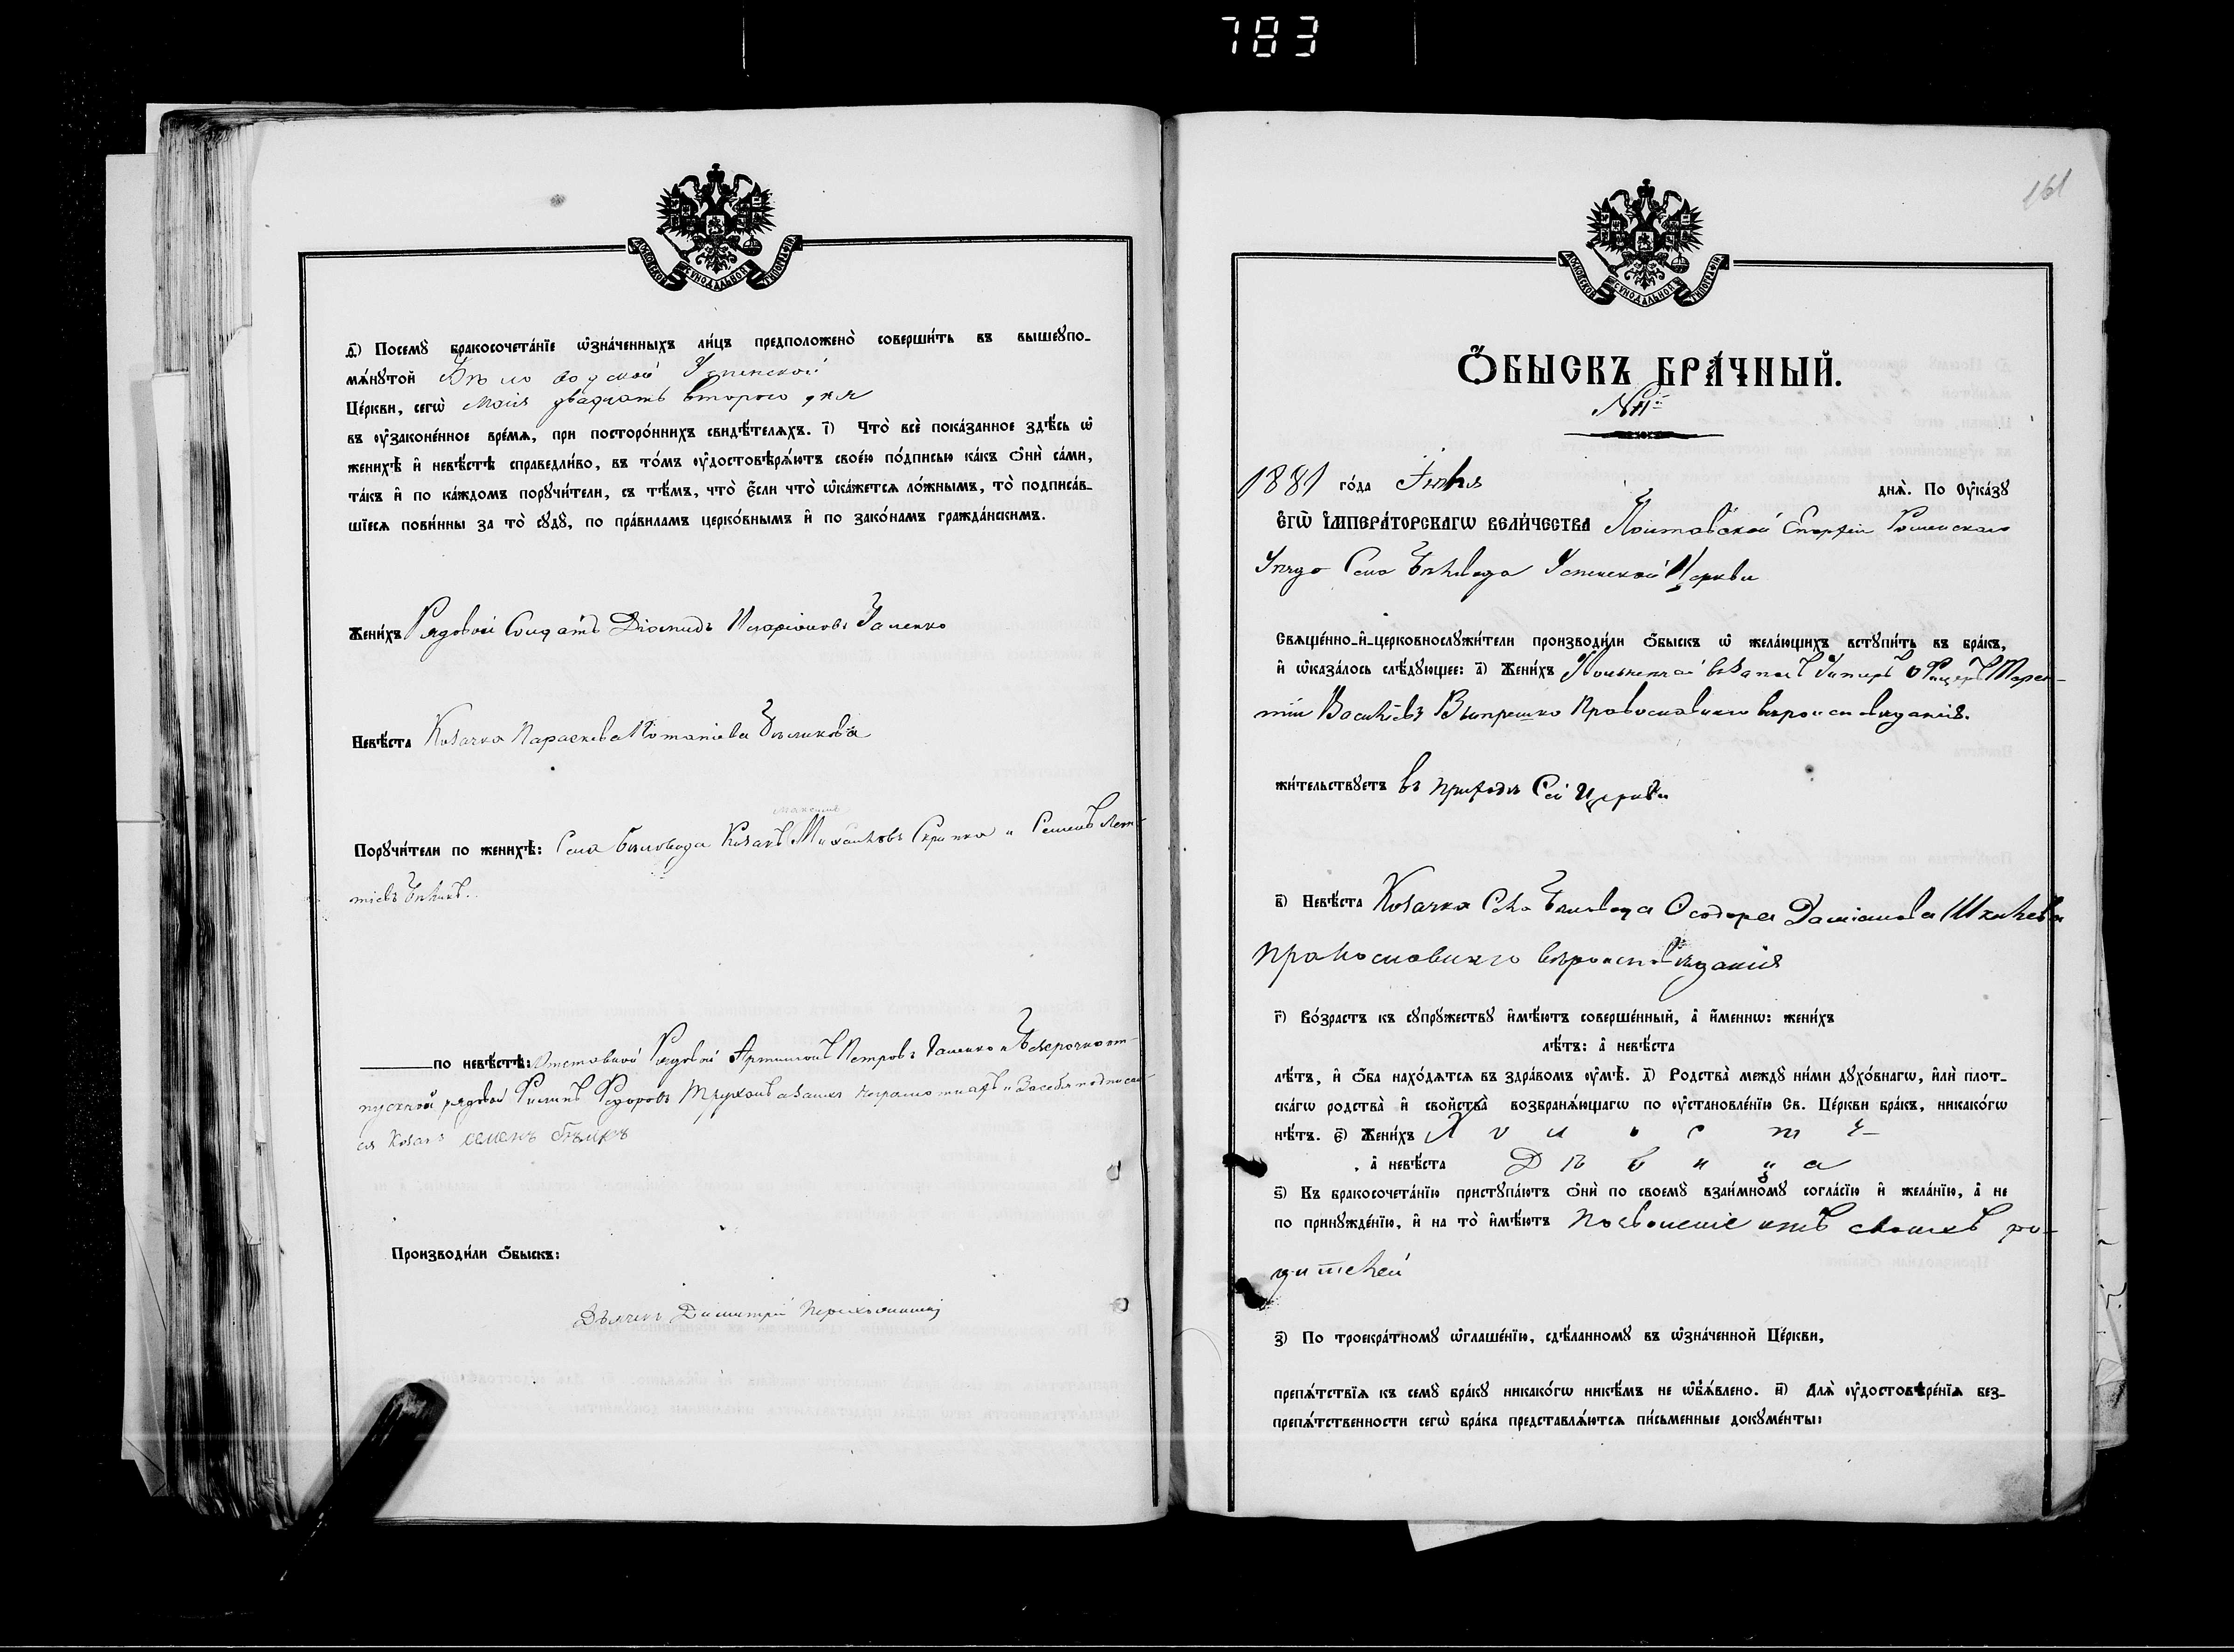 783
МОСКОВСКОЙ СѴНОДАЛЬНОЙ ТИПОГРАФІИ
ѳ҃) Посемꙋ̀ бракосочета́нїе ѡ҆зна́ченныхъ ли́цъ предположено̀ соверши́ть въ вышеꙋпо-
мѧ́нꙋтой Бѣловодской Успенской
Це́ркви, сегѡ̀ Мая двадцать второго дня
въ ᲂу҆законе́нное вре́мѧ, при посторо́ннихъ свидѣ́телѧхъ. і҃) Что̀ всѐ пока́занное здѣ́сь ѡ҆
женихѣ̀ и҆ невѣ́стѣ справедли́во, въ то́мъ ᲂу҆достовѣрѧ́ютъ свое́ю по́дписью ка́къ ѻ҆нѝ са́ми,
та́къ и҆ по ка́ждомъ порꙋчи́тели, съ тѣ́мъ, что̀ є҆́сли что̀ ѡ҆ка́жетсѧ ло́жнымъ, то̀ подписа́в-
шїесѧ пови́нны за то̀ сꙋдꙋ̀, по пра́виламъ церко́внымъ и҆ по зако́намъ гражда́нскимъ.
Жени́хъ Рядовой Солдатъ Діомидъ Иларіоновъ Заленко
Невѣ́ста Козачка Параскева Потапіева Бѣликова
Максимъ
Порꙋчи́тели по женихѣ̀: Села Бѣловода Козакъ Михаиловъ Скрипка и Семенъ Леон-
тіевъ Бѣликъ.
по невѣ́стѣ: Отставной Рядовой Петровъ и Безсрочноот-
пускной рядовой Филипъ Федоровъ
ся Козакъ семенъ бѣликъ
Производи́ли ѻ҆́быскъ:
Дьячекъ Димитрій
161
МОСКОВСКОЙ СѴНОДАЛЬНОЙ ТИПОГРАФІИ
Ѻ҆́БЫСКЪ БРА́ЧНЫЙ.
№11й
1881 го́да Іюля днѧ̀. По Оу҆ка́зꙋ
Є҆ГѠ̀ И҆МПЕРА́ТОРСКАГѠ ВЕЛИ́ЧЕСТВА Полтавской Епархіи Роменскаго
Уѣзда Села Бѣловода Успенской Церкви
Свѧще́нно-и҆-церковнослꙋжи́тели производи́ли ѻ҆́быскъ ѡ҆ жела́ющихъ встꙋпи́ть въ бра́къ,
и҆ ѡ҆каза́лось слѣ́дꙋющее: а҃) Жени́хъ Унтеръ Офицеръ Терен-
тій Васильевъ Вѣтрешко Православнаго вѣроисповѣданія.
жи́тельствꙋетъ въ приходѣ Сей Церкви
в҃) Невѣ́ста Козачка Села Бѣловода Ѳеодора Даміанова
православнаго вѣроисповѣданія
г҃) Во́зрастъ къ сꙋпрꙋ́жествꙋ и҆мѣ́ютъ соверше́нный, а҆̀ и҆́меннѡ: жени́хъ
лѣ́тъ: а҆̀ невѣ́ста
лѣ́тъ, и҆ ѻ҆́ба нахо́дѧтсѧ въ здра́вомъ ᲂу҆мѣ̀. д҃) Родства̀ междꙋ̀ ни́ми дꙋхо́внагѡ, и҆лѝ плот-
ска́гѡ родства̀ и҆ сво́йства̀ возбранѧ́ющагѡ по ᲂу҆становле́нїю Св. Це́ркви бра́къ, никако́гѡ
нѣ́тъ. є҃) Жени́хъ Холостъ
, а҆̀ невѣ́ста Дѣвица
ѕ҃) Къ бракосочета́нїю пристꙋпа́ютъ ѻ҆нѝ по своемꙋ̀ взаи́мномꙋ согла́сїю и҆ жела́нїю, а҆̀ не
по принꙋжде́нїю, и҆ на то̀ и҆мѣ́ютъ позволеніе отъ своихъ ро-
дителей
з҃) По троекра́тномꙋ ѡ҆глаше́нїю, сдѣ́ланномꙋ въ ѡ҆зна́ченной Це́ркви,
препѧ́тствїѧ къ семꙋ̀ бра́кꙋ никако́гѡ никѣ́мъ не ѡ҆б̾ѧ́влено. и҃) Длѧ̀ ᲂу҆достовѣре́нїѧ без-
препѧ́тственности сегѡ̀ бра́ка представлѧ́ютсѧ пи́сьменные докꙋме́нты: